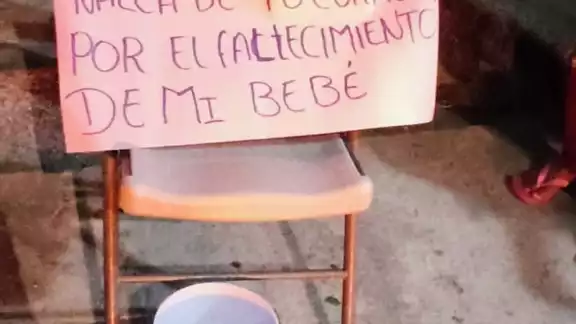 DE
POR EL FALLECIMIENTO
DE MI BEBÉ